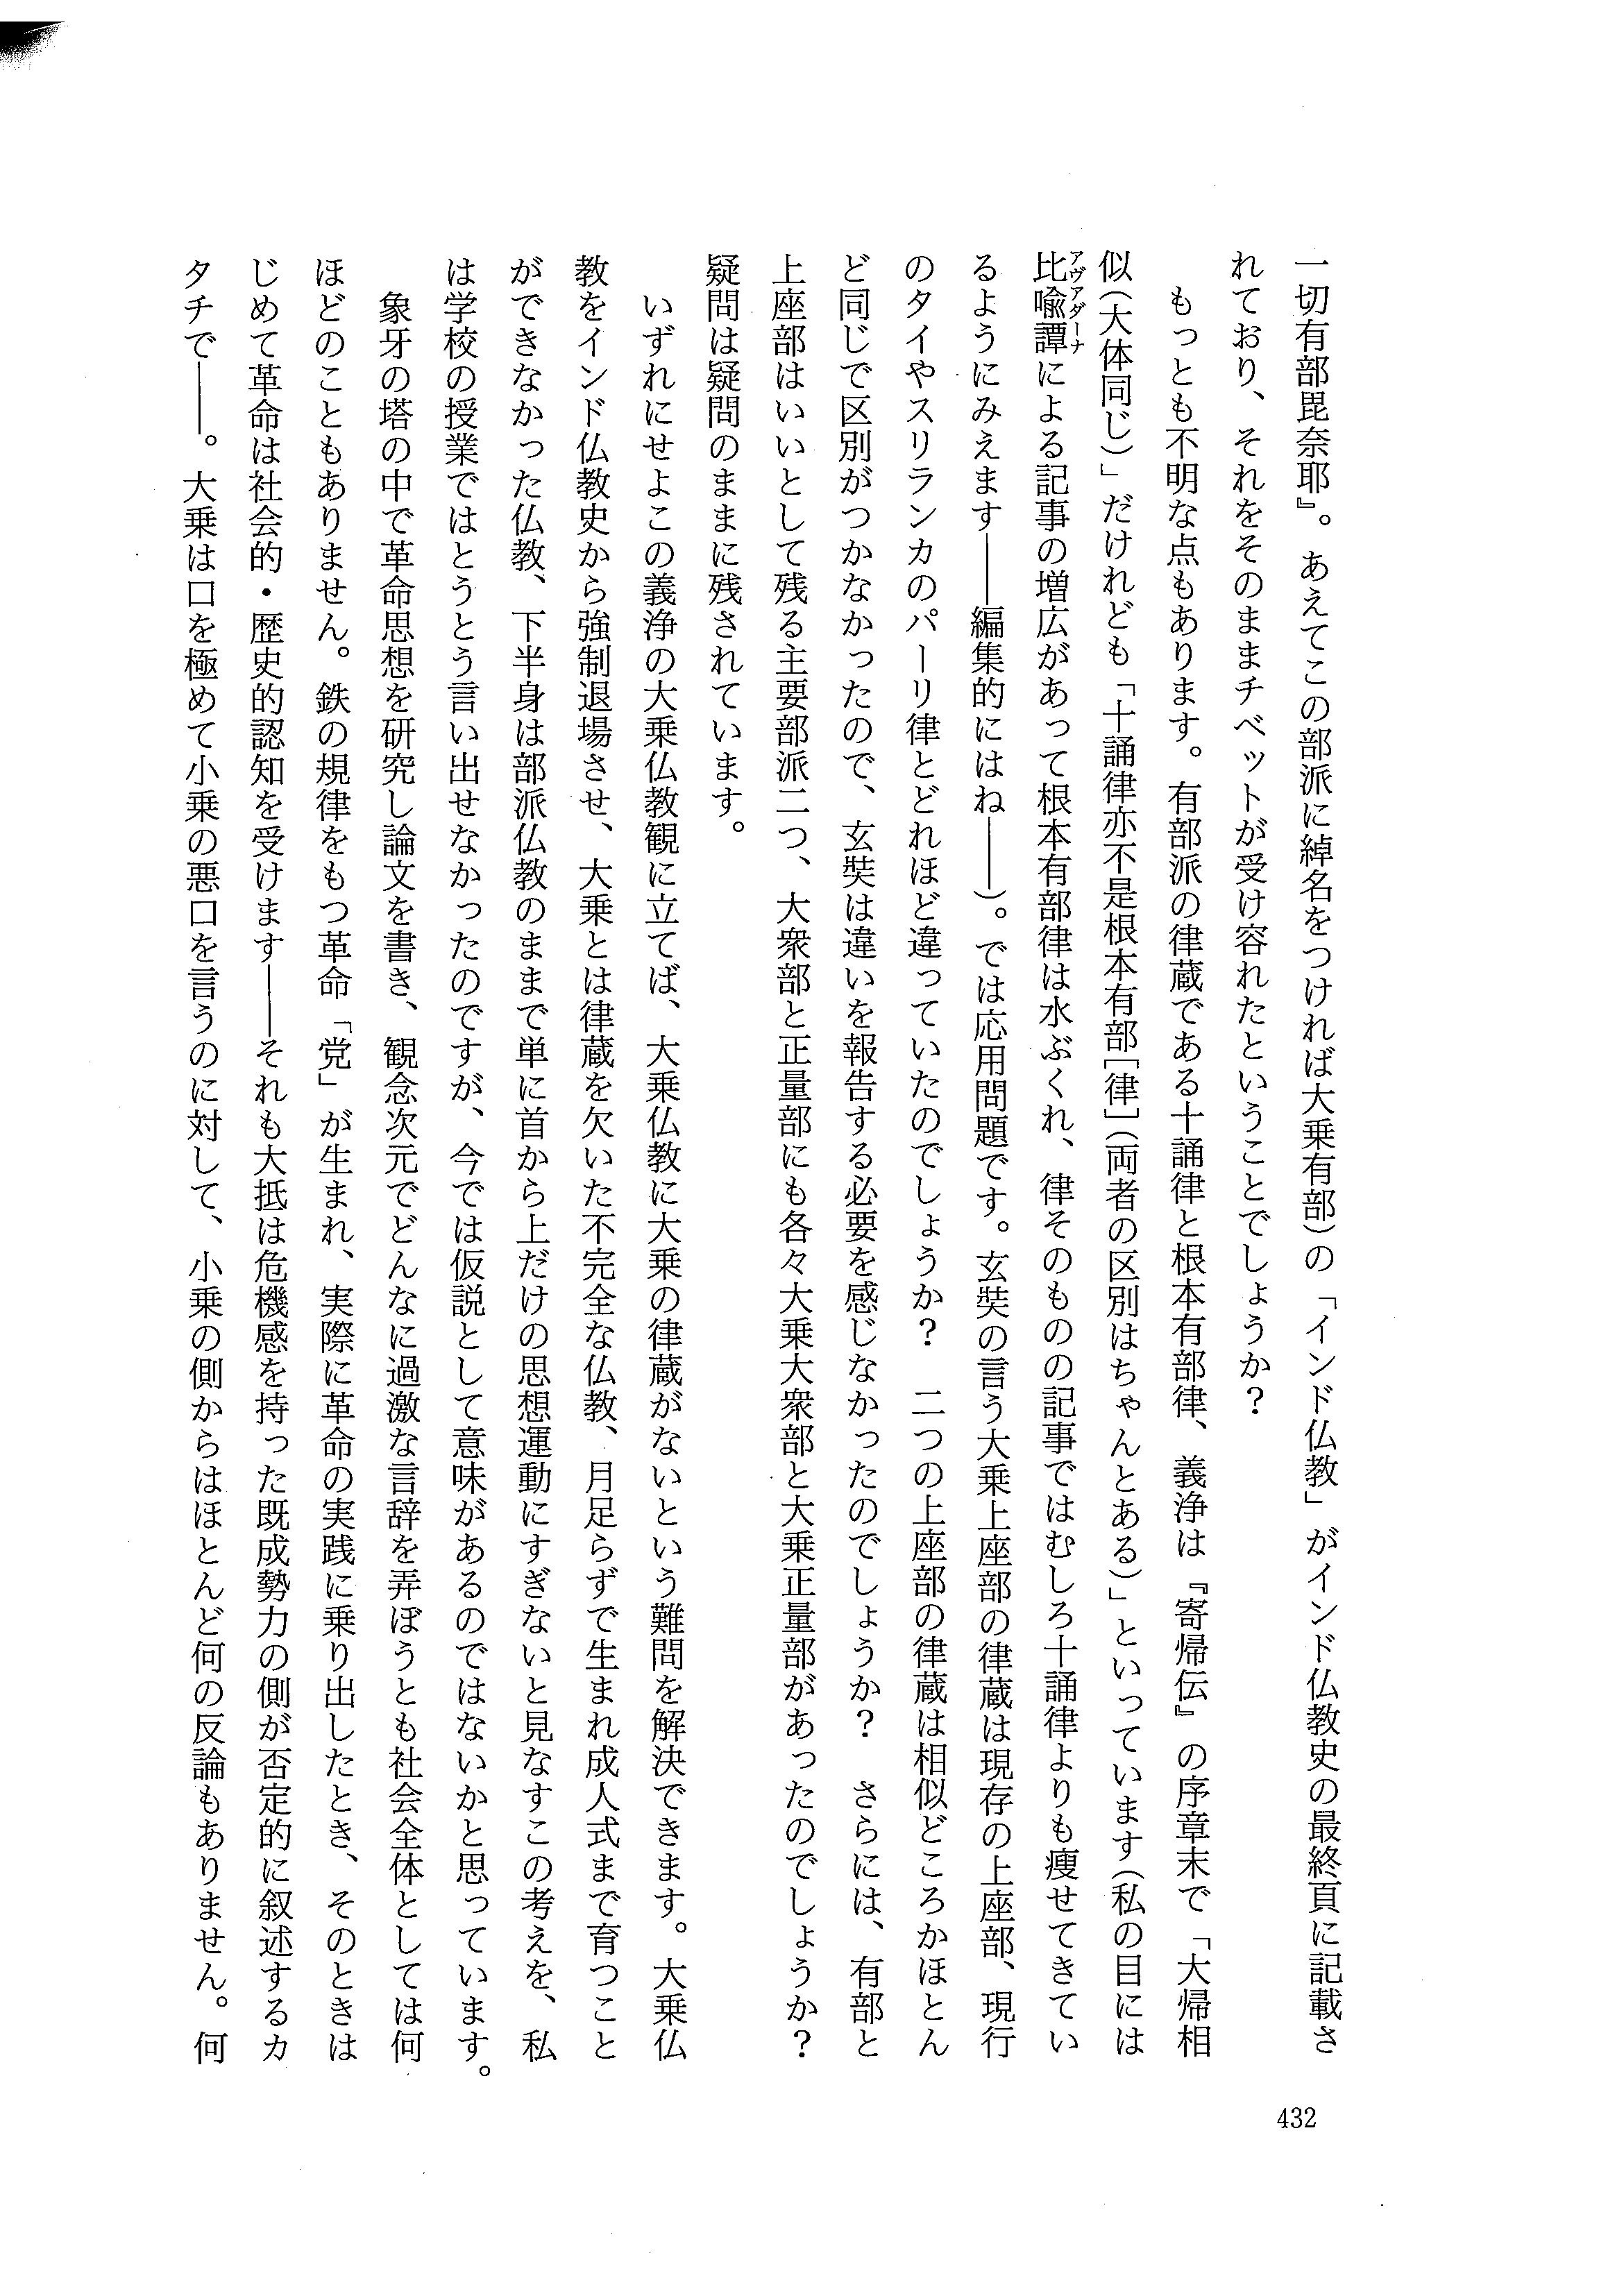 一切有部毘奈耶』。あえてこの部派に綽名をつければ大乗有部）の「インド仏教」がインド仏教史の最終頁に記載さ
れており、それをそのままチベットが受け容れたということでしょうか？
もっとも不明な点もあります。有部派の律蔵である十誦律と根本有部律、義浄は『寄帰伝』の序章末で「大帰相
似（大体同じ）」だけれども「十誦律亦不是根本有部［律］（両者の区別はちゃんとある）」といっています（私の目には
比喩譚アヴァダーナによる記事の増広があって根本有部律は水ぶくれ、律そのものの記事ではむしろ十誦律よりも痩せてきてい
るようにみえます――編集的にはね――）。では応用問題です。玄奘の言う大乗上座部の律蔵は現存の上座部、現行
のタイやスリランカのパーリ律とどれほど違っていたのでしょうか？　二つの上座部の律蔵は相似どころかほとん
ど同じで区別がつかなかったので、玄奘は違いを報告する必要を感じなかったのでしょうか？　さらには、有部と
上座部はいいとして残る主要部派二つ、大衆部と正量部にも各々大乗大衆部と大乗正量部があったのでしょうか？
疑問は疑問のままに残されています。
いずれにせよこの義浄の大乗仏教観に立てば、大乗仏教に大乗の律蔵がないという難問を解決できます。大乗仏
教をインド仏教史から強制退場させ、大乗とは律蔵を欠いた不完全な仏教、月足らずで生まれ成人式まで育つこと
ができなかった仏教、下半身は部派仏教のままで単に首から上だけの思想運動にすぎないと見なすこの考えを、私
は学校の授業ではとうとう言い出せなかったのですが、今では仮説として意味があるのではないかと思っています。
象牙の塔の中で革命思想を研究し論文を書き、観念次元でどんなに過激な言辞を弄ぼうとも社会全体としては何
ほどのこともありません。鉄の規律をもつ革命「党」が生まれ、実際に革命の実践に乗り出したとき、そのときは
じめて革命は社会的・歴史的認知を受けます――それも大抵は危機感を持った既成勢力の側が否定的に叙述するカ
タチで――。大乗は口を極めて小乗の悪口を言うのに対して、小乗の側からはほとんど何の反論もありません。何
432